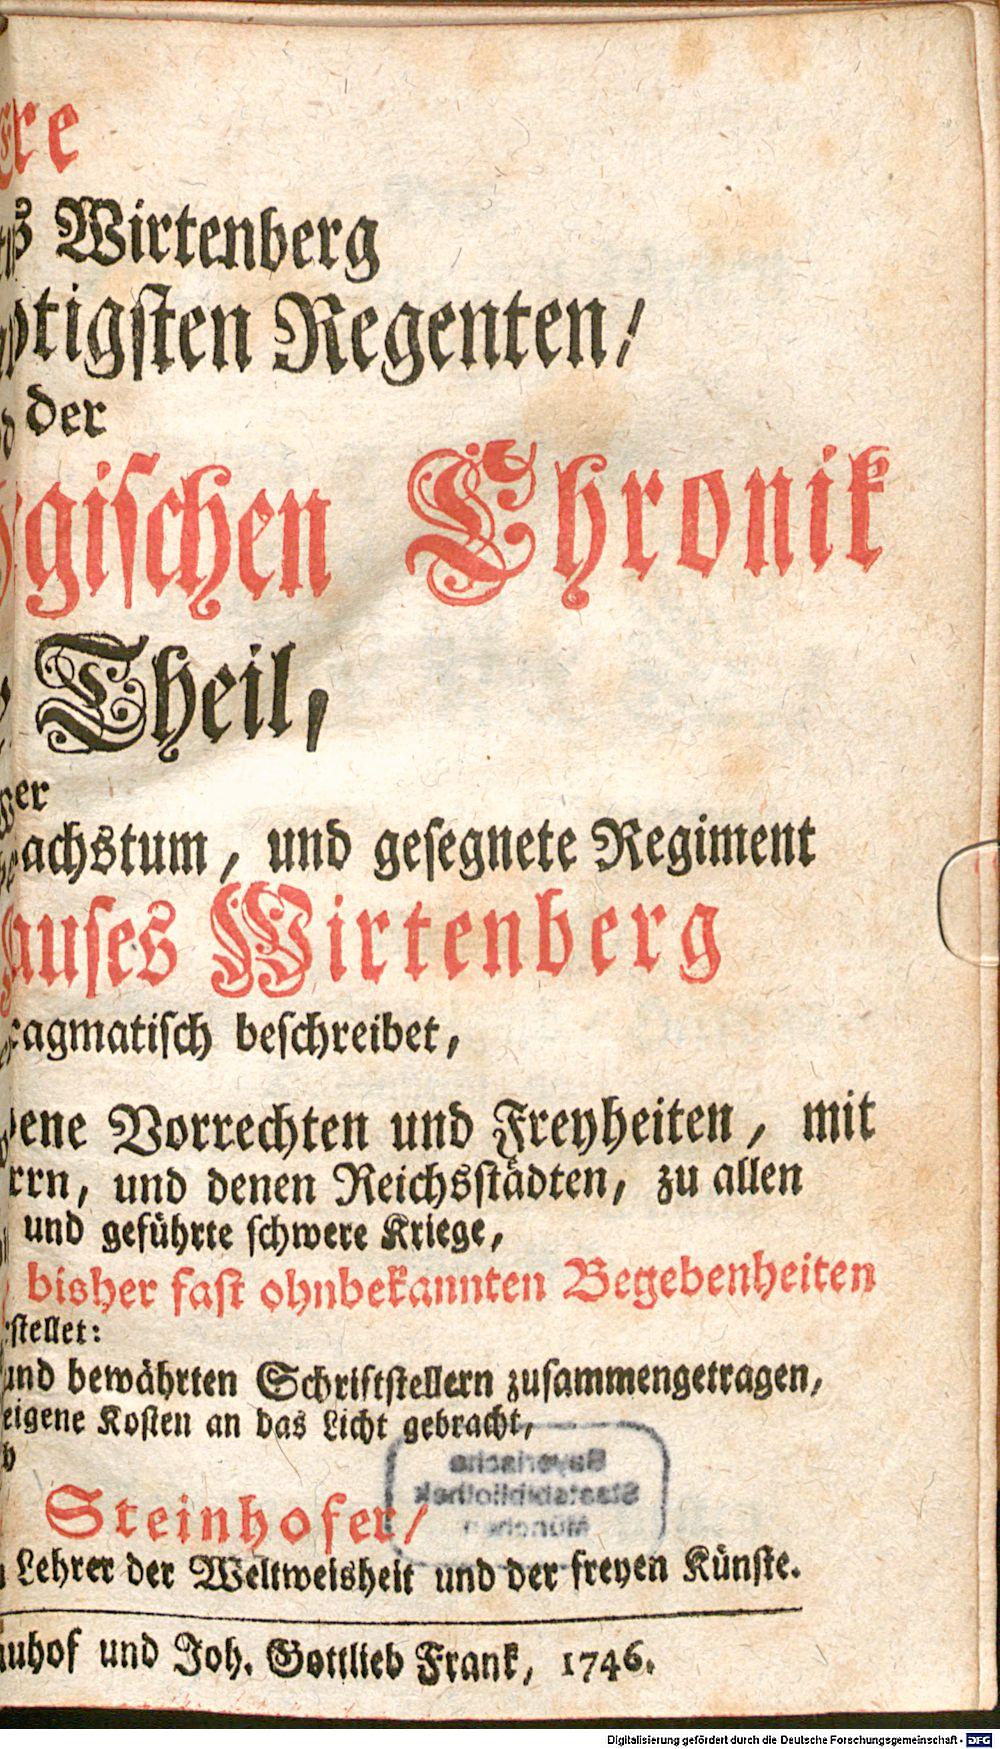 Ehre
Wirtenberg
htigsten Regenten/
der
gischen Chronik
Theil,
er
achstum, und gesegnete Regiment
auses Wirtenberg
ragmatisch beschreibet,
ene Vorrechten und Freyheiten, mit
rrn, und denen Reichsstädten, zu allen
und geführte schwere Kriege,
bisher fast ohnbekannten Begebenheiten
stellet:
und bewährten Schriftstellern zusammengetragen,
eigene Kosten an das Licht gebracht,
Bayerische
Staatsbibliothek
München
Steinhofer/
Lehrer der Weltweisheit und der freyen Künste.
uhof und Joh. Gottlieb Frank, 1746.
Digitalisierung gefördert durch die Deutsche Forschungsgemeinschaft - DFG